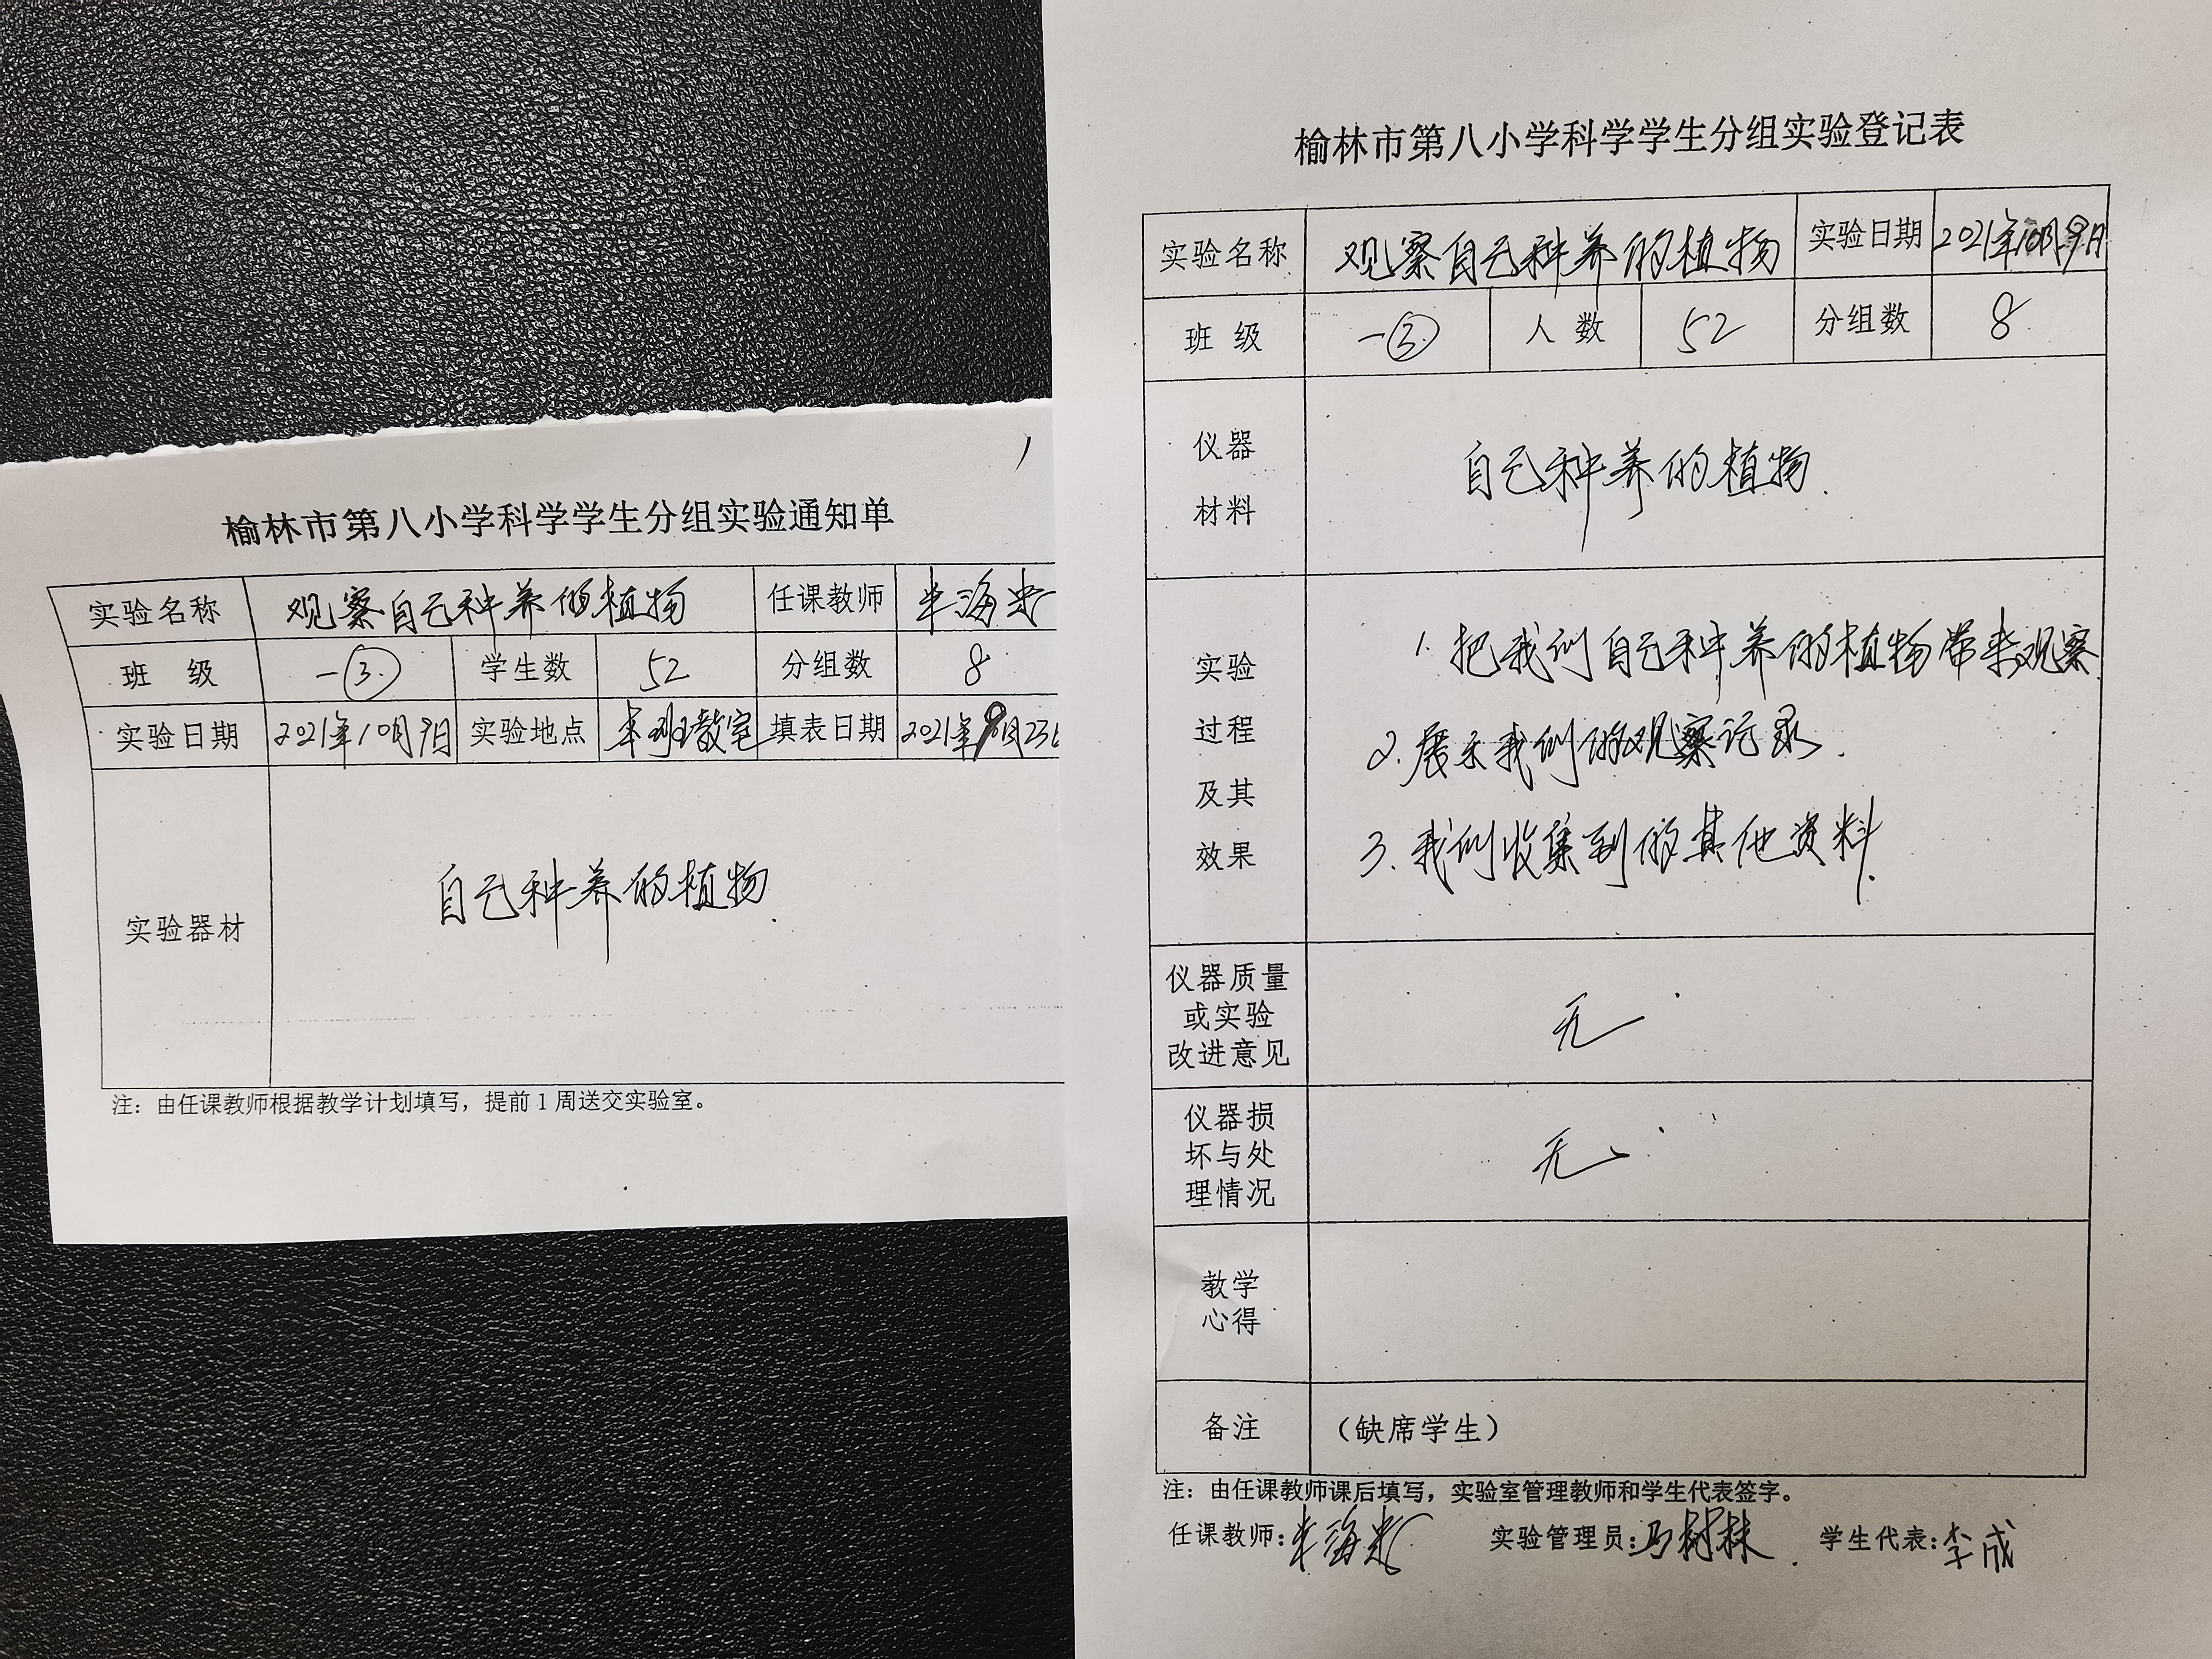 榆林市第八小学科学学生分组实验通知单
实验名称 观察自己种养的植物 任课教师
班 级 一③ 学生数 52 分组数 8
实验日期 2021年10月9日 实验地点 本班教室 填表日期 2021年9月23日
实验器材 自己种养的植物.
注：由任课教师根据教学计划填写，提前1周送交实验室。
榆林市第八小学科学学生分组实验登记表
实验名称 观察自己种养的植物 实验日期 2021年10月9日
班 级 一③ 人 数 52 分组数 8
仪器
材料
自己种养的植物.
实验
过程
及其
效果
1. 把我们自己种养的植物带来观察
2. 展示我们的观察记录.
3. 我们收集到的其他资料.
仪器质量
或实验
改进意见
无
仪器损
坏与处
理情况
无
教学
心得
备注 （缺席学生）
注：由任课教师课后填写，实验室管理教师和学生代表签字。
任课教师: 实验管理员:马树林. 学生代表:李成